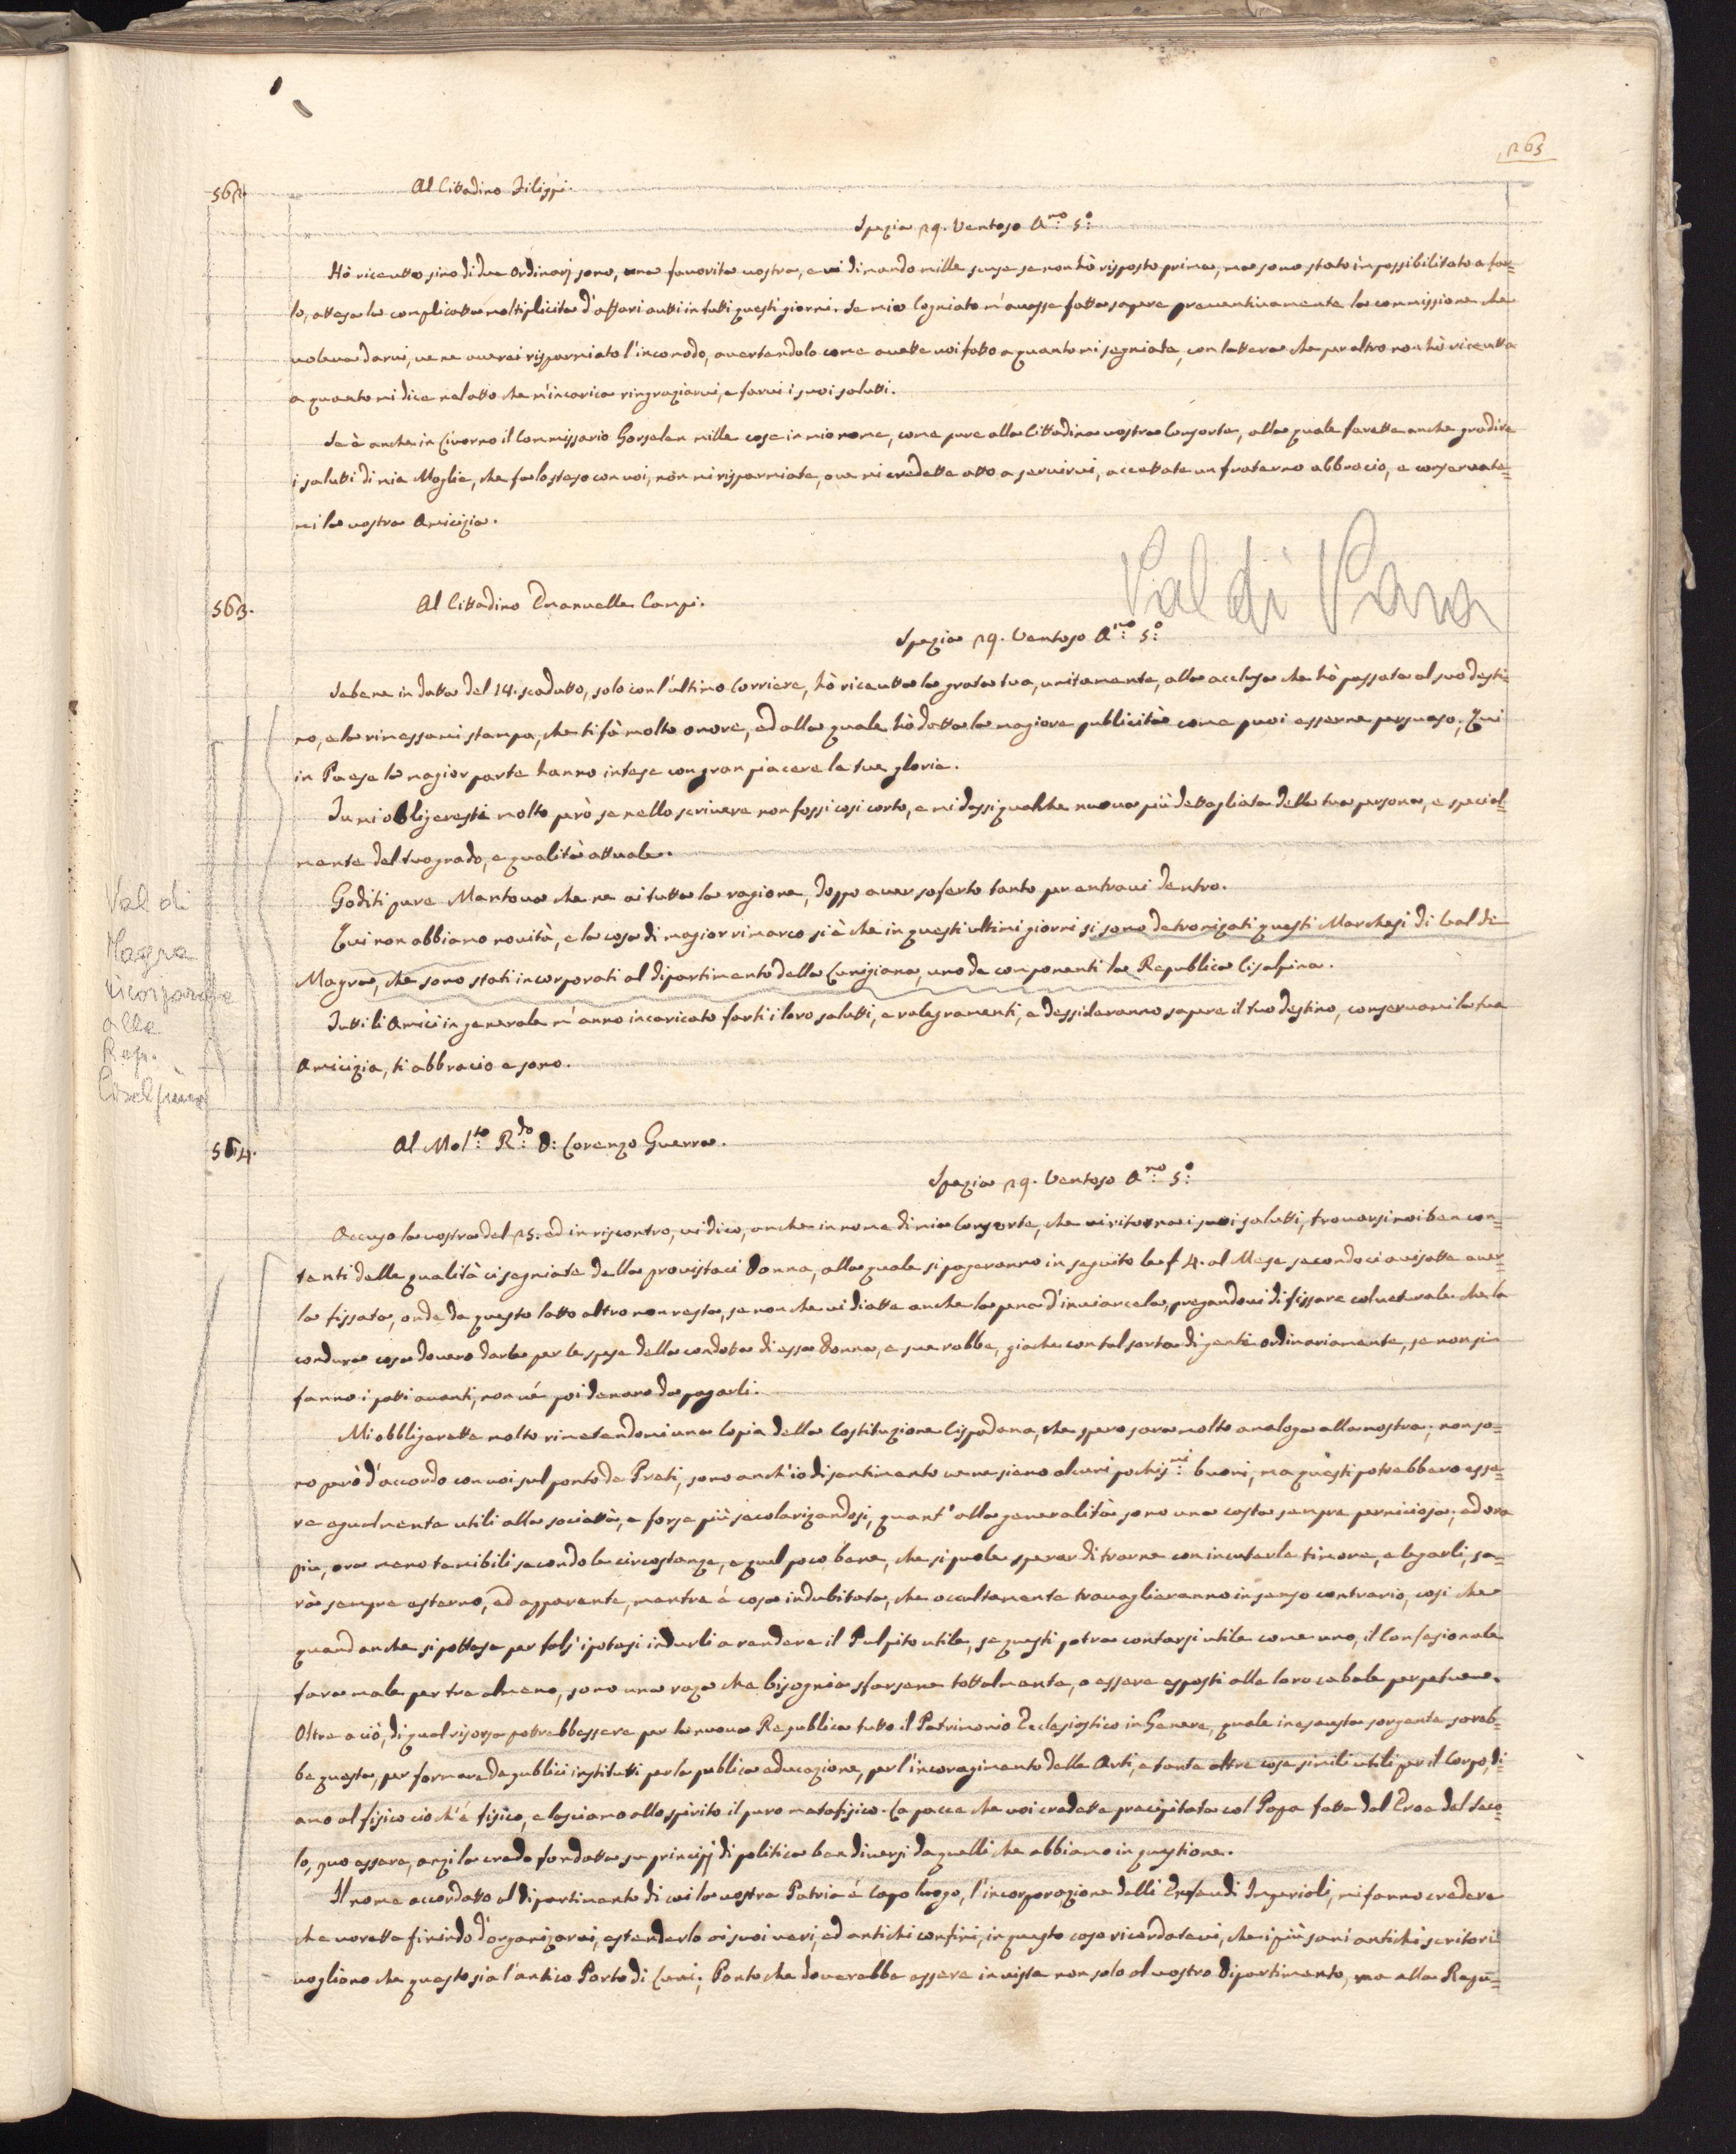 263
562. Al Cittadino Filippi.
Spezia 29. Ventoso A.no 5.o
Hò riceutto sino di due Ordinarj sono, una favorita vostra, e vi dimando mille scuse se non hò risposto prima, ma sono stato impossibilitato a far=
lo, attesa la complicatta moltiplicita d'affari autti in tutti questi giorni. Se mio Cogniato m'avesse fatto sapere preventivamente la commissione che
voleva darvi, ve ne averei risparmiato l'incomodo, avertendolo come avette voi fatto a quanto mi segniate, con lattera che per altro non hò riceutta
a quanto mi dice nel atto che m'incarica ringraziarvi, e farvi i suoi salutti.
Se è anche in Livorno il Commissario Garselen mille cose in mio nome, come pure alla Cittadina vostra Consorte, alla quale farette anche gradire
i salutti di mia Moglie, che fa lo steso con voi, non mi risparmiate, ove mi credette atto a servirvi, accettate un fraterno abbracio, e conservate=
mi la vostra Amicizia.
Val di Vara
563. Al Cittadino Emanuelle Campi.
Spezia 29. Ventoso A.no 5.o
Sebene in datta del 14. scadutto, solo con l'ultimo Corriere, hò riceutta la grata tua, unitamente, alla acclusa che hò passata al suo desti=
no, e la rimessami stampa, che ti fà molto onore, ed alla quale hò datta la magiore publicità come puoi esserne persuaso. Qui
in Paese la magior parte hanno intese con gran piacere le tue glorie.
Tu mi obligeresti molto però se nello scrivere non fossi cosi corto, e mi dassi qualche nuova più dettagliata della tua persona, e special=
mente del tuo grado, e qualità attuale.
Goditi pure Mantova che ne ai tutta la ragione, doppo aver soferto tanto per entravi dentro.
Qui non abbiamo novità, e la cosa di magior rimarco si è che in questi ultimi giorni si sono detronizati questi Marchesi di Val di
Magra, che sono stati incorporati al dipartimento della Lunigiana, uno de componenti la Republica Cisalpina.
Tutti li Amici in generale m'anno incaricato farti i loro salutti, e ralegramenti, e dessideranno sapere il tuo destino, conservami la tua
Amicizia, ti abbracio e sono.
Val di
Magra
incorporate
alla
Rep.
Cisalpina
564. Al Mol.to R.do D: Lorenzo Guerra.
Spezia 29. Ventoso A.no 5.o
Accuso la vostra del 25. ed in riscontro, vi dico, anche in nome di mia Consorte, che vi ritorna i suoi salutti, trovarsi noi ben con=
tenti delle qualità ci segniate della provistaci Donna, alla quale si pageranno in seguito le £ 4. al Mese secondo ci avisatte aver=
la fissata, onde da questo latto altro non resta, se non che vi diatte anche la pena d'inviarcela, pregandovi di fissare col veturale che la
condurà cosa dovero darle per le spese della condotta di essa Donna, e sue robbe, giache con tal sorta di gente ordinariamente, se non si
fanno i patti avanti, non v'é poi denaro da pagarli.
Mi obbligerette molto rimetendomi una Copia della Costituzione Cispadana, che spero sara molto analoga alla nostra; non so=
no però d'accordo con voi sul ponto de Preti, sono anch'io di sentimento ve ne siano alcuni pochis.mi buoni, ma questi potrebbero esse=
re egualmente utili alla società, e forse più secolarizandosi, quant'alla generalità sono una casta sempre perniciosa, ed ora
più, ora meno temibili secondo le circostanze, e quel poco bene, che si puole sperar di trarne con incuterle timore, e legarli, sa=
rà sempre esterno, ed apparente, mentre é cosa indubitata, che occultamente travaglieranno in senso contrario, cosi che
quand anche si pottese per fals' ipotesi indurli a rendere il Pulpito utile, se questi potra contarsi utile come uno, il Confesionale
fara male per tre almeno, sono una raza che bisognia sfarsene tottalmente, o essere esposti alle loro cabale perpetue.
Oltre a ciò, di qual risorsa pottrebb'essere per la nuova Republica tutto il Patrimonio Eclesiastico in Genere, quale inesausta sorgente sareb=
be questa, per formare de publici instituti per la publica educazione, per l'incoragimento delle Arti, e tante altre cose simili utili per il Corpo, di=
amo al fisico ciò ch'é fisico, e lasciamo allo spirito il puro metafisico. La pacce che voi credette precipitata col Papa fatta dal Eroe del seco=
lo, puo essere, anzi la credo fondatta su principj di politica ben diversi da quelli che abbiamo in questione.
Il nome accordatto al dipartimento di cui la vostra Patria é Capo luogo, l'incorporazione delli Exfeudi Imperioli, mi fanno credere
che vorette finindo d'organizarvi, estenderlo ai suoi veri, ed antichi confini, in questo caso ricordatevi, che i più sani antichi scritori
vogliono che questo sia l'antico Porto di Luni, Ponto che doverebbe essere in vista non solo al vostro dipartimento, ma alla Repu=